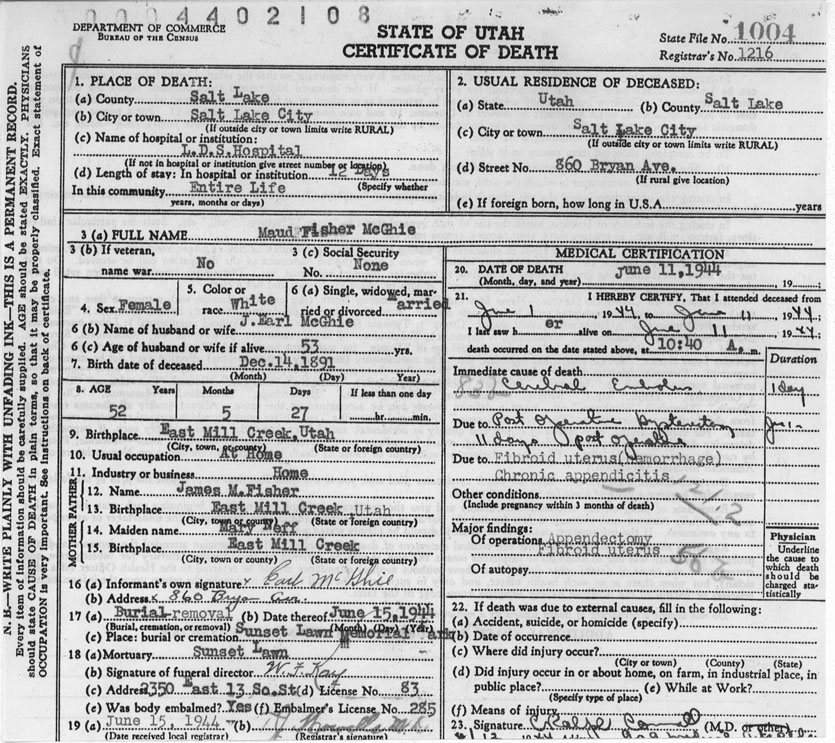 0004402108
DEPARTMENT OF COMMERCE
BUREAU OF THE CENSUS
STATE OF UTAH
CERTIFICATE OF DEATH
State File No. 1004
Registrar's No. 1216
N. B.—WRITE PLAINLY WITH UNFADING INK—THIS IS A PERMANENT RECORD.
Every item of information should be carefully supplied. AGE should be stated EXACTLY. PHYSICIANS
should state CAUSE OF DEATH in plain terms, so that it may be properly classified. Exact statement of
OCCUPATION is very important. See instructions on back of certificate.
1. PLACE OF DEATH:
(a) County Salt Lake
(b) City or town Salt Lake City
(If outside city or town limits write RURAL)
(c) Name of hospital or institution:
L.D.S. Hospital
(If not in hospital or institution give street number or location)
(d) Length of stay: In hospital or institution 12 Days
(Specify whether
In this community Entire Life
years, months or days)
2. USUAL RESIDENCE OF DECEASED:
(a) State Utah (b) County Salt Lake
(c) City or town Salt Lake City
(If outside city or town limits write RURAL)
(d) Street No. 860 Bryan Ave.
(If rural give location)
(e) If foreign born, how long in U.S.A. years
3 (a) FULL NAME Maud Fisher McGhie
3 (b) If veteran,
name war No
3 (c) Social Security
No. None
4. Sex Female
5. Color or
race White
6 (a) Single, widowed, mar-
ried or divorced Married
6 (b) Name of husband or wife J. Earl McGhie
6 (c) Age of husband or wife if alive 53 yrs.
7. Birth date of deceased Dec.14,1891
(Month) (Day) Year)
8. AGE Years Months Days If less than one day
52 5 27 hr. min.
9. Birthplace East Mill Creek, Utah
(City, town, or county) (State or foreign country)
10. Usual occupation At Home
11. Industry or business Home
MOTHER FATHER
12. Name James M. Fisher
13. Birthplace East Mill Creek, Utah
(City, town or county) (State or foreign country)
14. Maiden name Mary Neff
15. Birthplace East Mill Creek
(City, town or county) (State or foreign country)
16 (a) Informant's own signature x Earl McGhie
(b) Address x 860 Bryan Ave.
17 (a) Burial-removal (b) Date thereof June 15,1944
(Burial, cremation, or removal) (Month) (Day) (Year)
(c) Place: burial or cremation Sunset Lawn Memorial Park
18 (a) Mortuary Sunset Lawn
(b) Signature of funeral director W. F. Kay
(c) Address 2350 East 13 So. St (d) License No. 83
(e) Was body embalmed? Yes (f) Embalmer's License No. 285
19 (a) June 15, 1944 (b)
(Date received local registrar) (Registrar's signature)
MEDICAL CERTIFICATION
20. DATE OF DEATH June 11,1944
(Month, day, and year) 19
21. I HEREBY CERTIFY, That I attended deceased from
June 1 1944, to June 11 1944
I last saw h er alive on June 11 1944
death occurred on the date stated above, at 10:40 A. m.
Duration
Immediate cause of death
Cerebral Embolus 1 day
Due to Post Operative Hysterectomy
11 days post operative
Due to Fibroid uterus(Hemorrhage)
Chronic appendicitis
Other conditions
(Include pregnancy within 3 months of death)
Major findings:
Of operations Appendectomy
Fibroid uterus
Of autopsy
Physician
Underline
the cause to
which death
should be
charged sta-
tistically
22. If death was due to external causes, fill in the following:
(a) Accident, suicide, or homicide (specify)
(b) Date of occurrence
(c) Where did injury occur?
(City or town) (County) (State)
(d) Did injury occur in or about home, on farm, in industrial place, in
public place? (e) While at Work?
(Specify type of place)
(f) Means of injury
23. Signature (M.D. or other)